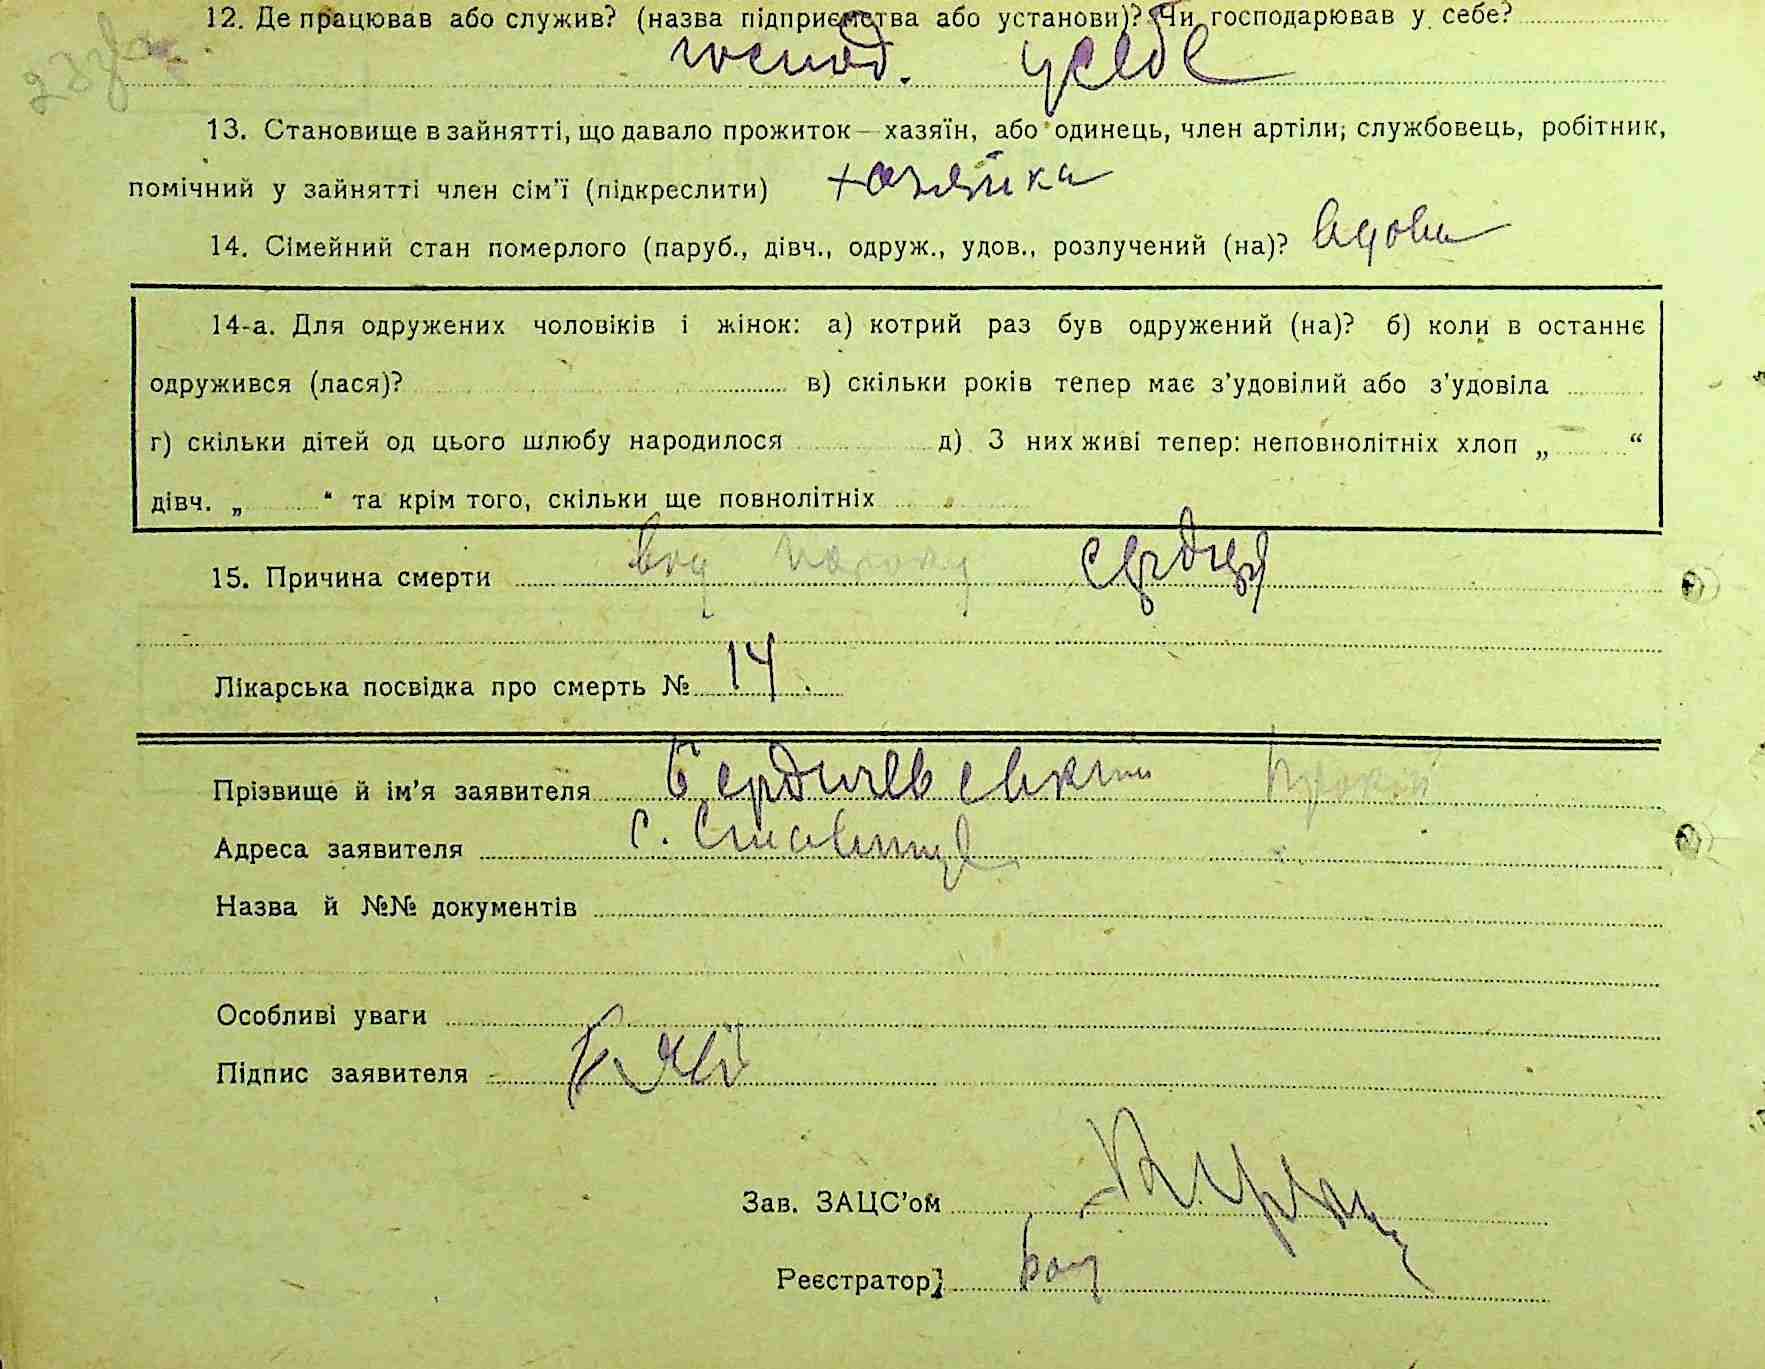 12. Де працював або служив? (назва підприємства або установи)? Чи господарював у себе?
господ. у себе
13. Становище в зайнятті, що давало прожиток — хазяїн, або одинець, член артіли; службовець, робітник,
помічний у зайнятті член сім'ї (підкреслити) хазяйка
14. Сімейний стан померлого (паруб., дівч., одруж., удов., розлучений (на)? вдова
14-а. Для одружених чоловіків і жінок: а) котрий раз був одружений (на)? б) коли в останнє
одружився (лася)? в) скільки років тепер має з'удовілий або з'удовіла
г) скільки дітей од цього шлюбу народилося д) З них живі тепер: неповнолітніх хлоп „ “
дівч. „ “ та крім того, скільки ще повнолітніх
15. Причина смерти вод пороку сердця
Лікарська посвідка про смерть № 14.
Прізвище й ім'я заявителя Бердичевський
Адреса заявителя с. Ставище
Назва й №№ документів
Особливі уваги
Підпис заявителя
Зав. ЗАЦС'ом
Реєстратор